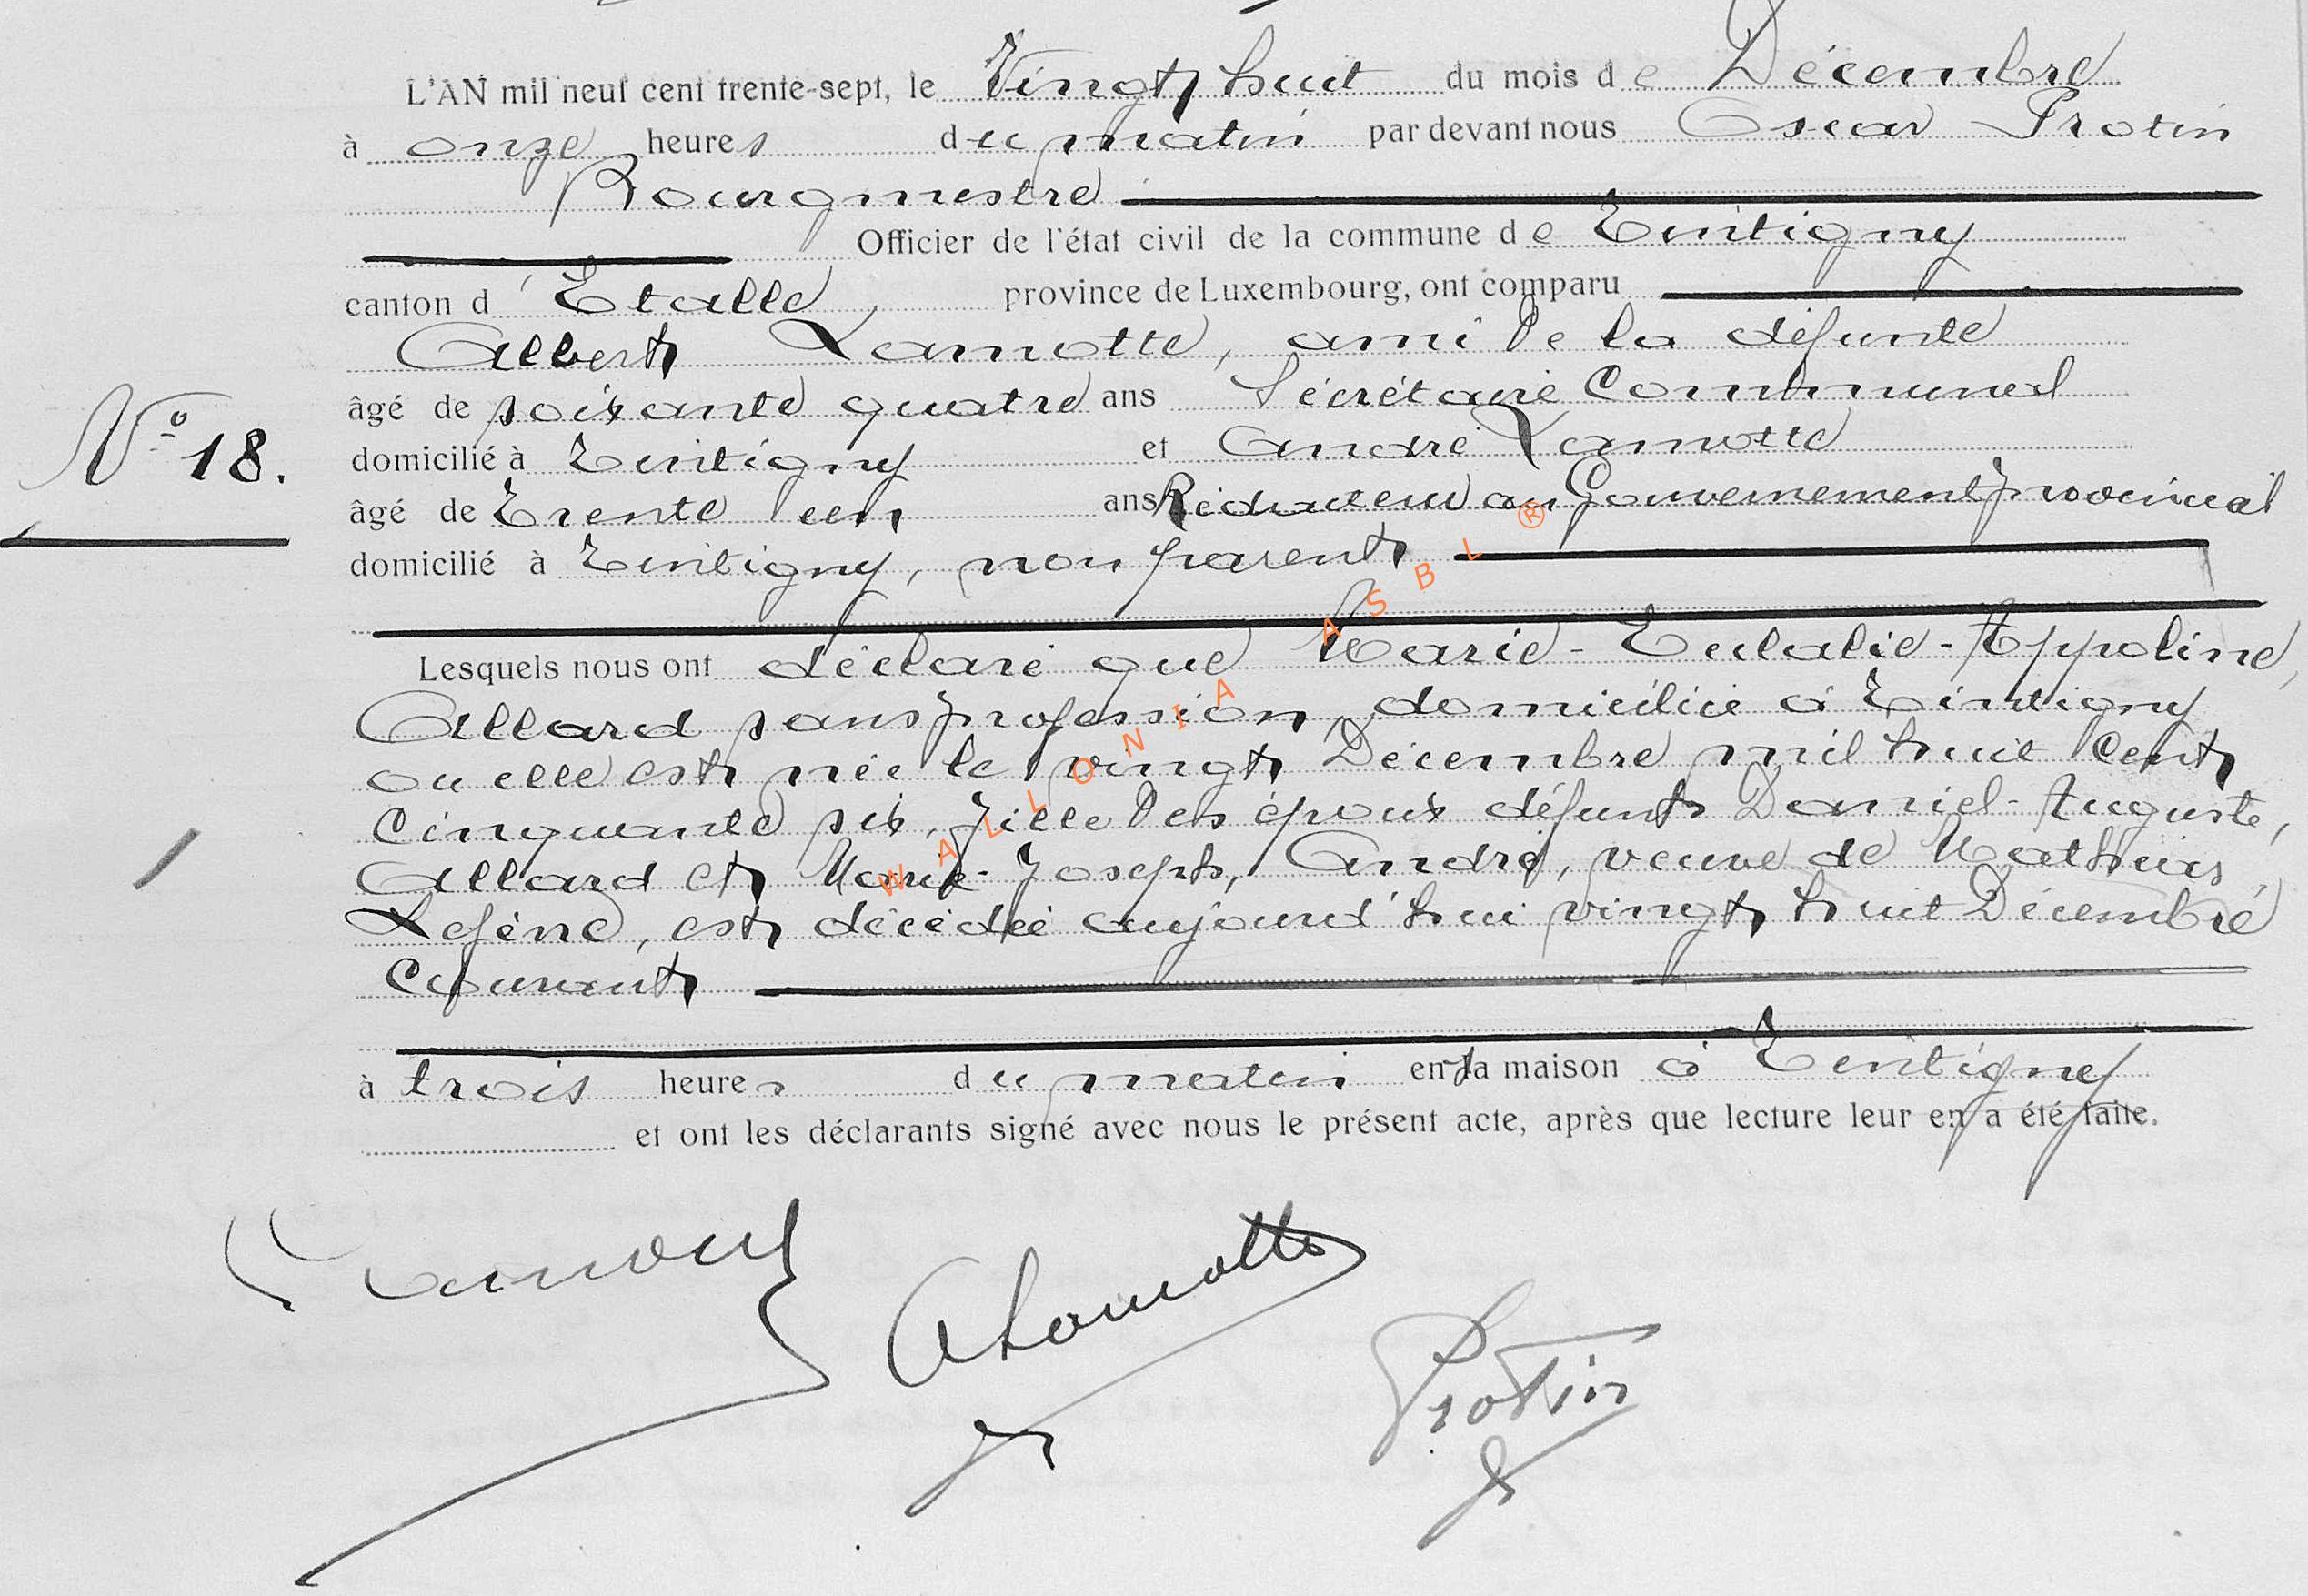 L'AN mil neuf cent trente-sept, le Vingt huit du mois de Décembre
à onze heures du matin par devant nous Oscar Protin
Bourgmestre
Officier de l'état civil de la commune de Tintigny
canton d'Etalle, province de Luxembourg, ont comparu
Albert Lamotte, ami de la défunte
âgé de soixante quatre ans Sécrétaire Communal
domicilié à Tintigny et André Lamotte
N° 18.
âgé de Trente un ans Rédacteur au Gouvernement provincial
domicilié à Tintigny, non parents
Lesquels nous ont déclaré que Marie-Eulalie-Appoline,
Allard sans profession, domiciliée à Tintigny
ou elle est née le vingt Décembre mil huit Cent
Cinquante six, fille des époux défunts Daniel-Auguste,
Allard et Marie-Joseph, André, veuve de Mathias
Lefène, est décédée aujourd'hui vingt huit Décembre
Courant
à trois heures du matin en sa maison à Tintigny
et ont les déclarants signé avec nous le présent acte, après que lecture leur en a été faite.
ALamotte
Protin
WALLONIA ASBL ®